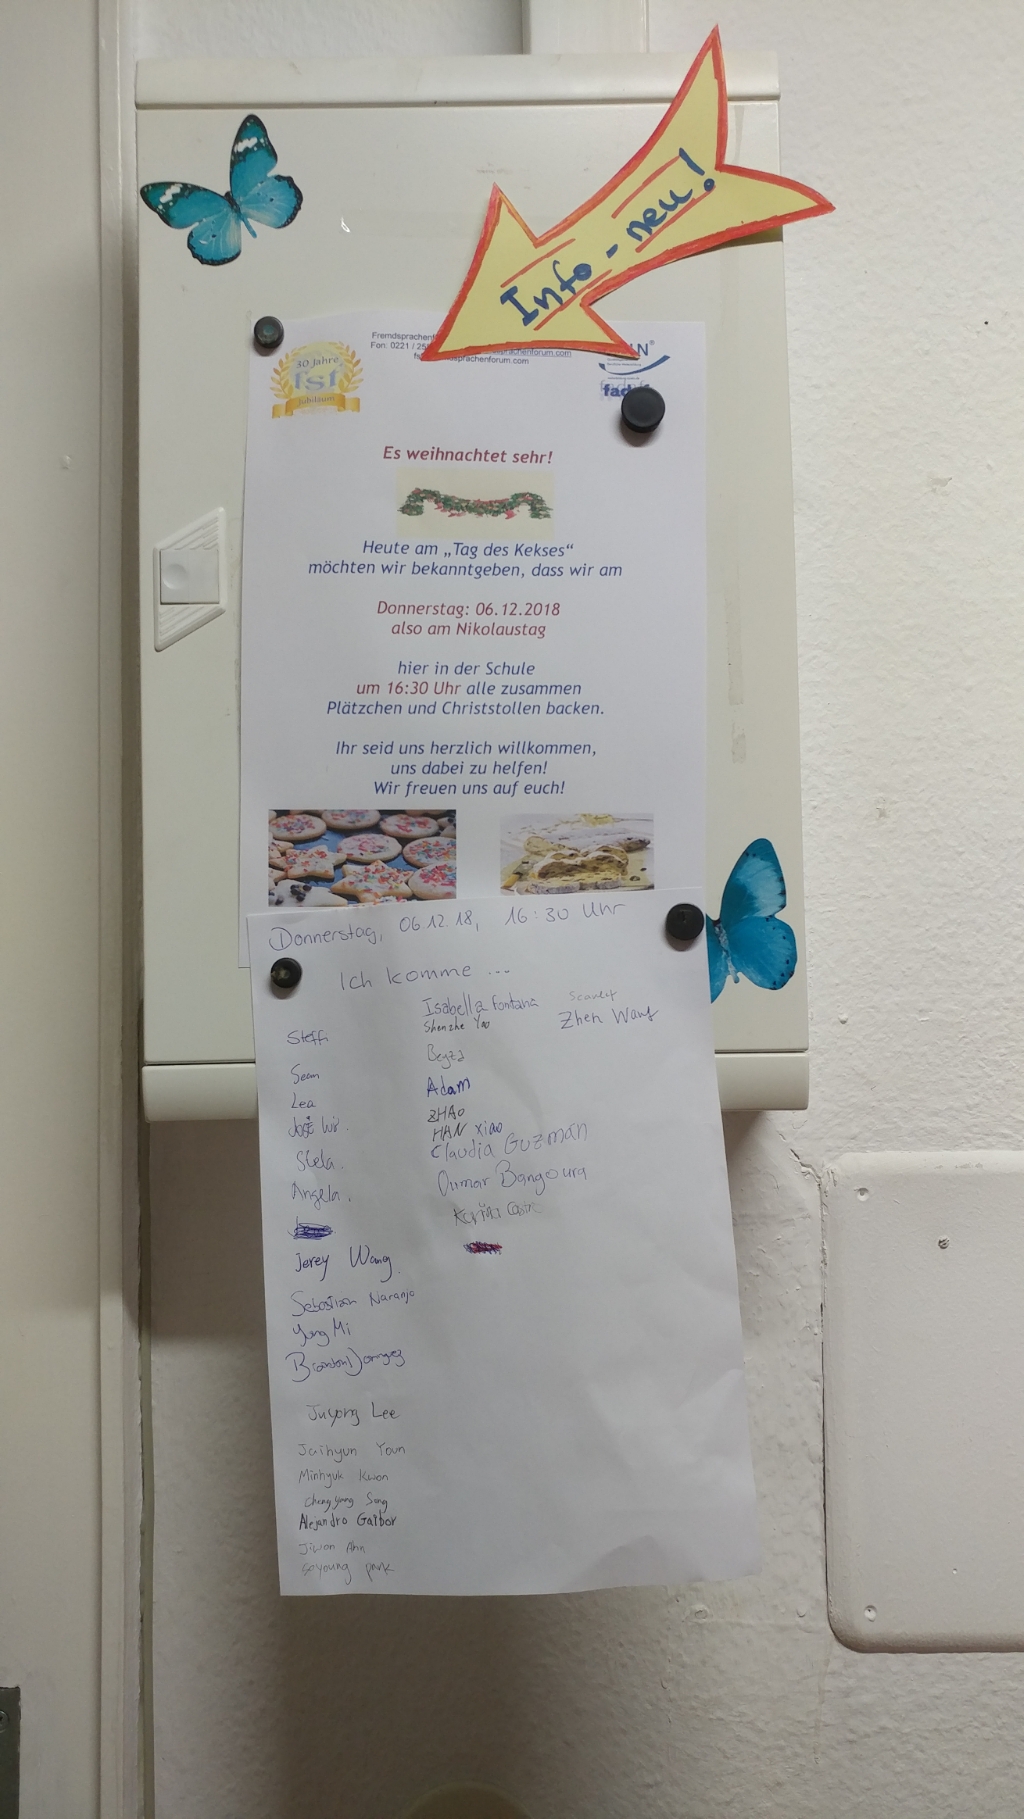 Info - neu!
30 Jahre
fsf
Jubiläum
Fon: 0221 /
sprachenforum.com
dsprachenforum.com
Es weihnachtet sehr!
Heute am „Tag des Kekses“
möchten wir bekanntgeben, dass wir am
Donnerstag: 06.12.2018
also am Nikolaustag
hier in der Schule
um 16:30 Uhr alle zusammen
Plätzchen und Christstollen backen.
Ihr seid uns herzlich willkommen,
uns dabei zu helfen!
Wir freuen uns auf euch!
Donnerstag, 06.12.18, 16:30 Uhr
Ich komme ...
Steffi
Sean
Lea
Angela.
Jerey Wang
Sebastian Naranjo
Yung Mi
Juyong Lee
Jaihyun Youn
Minhyuk Kwon
Alejandro Gaibor
Jiwon Ahn
soyoung park
Isabella Fontana
Shenzhe Yao
Beyza
Adam
ZHAO
HAN Xiao
Claudia GUZMÁN
Oumar Bangoura
Zhen Wang